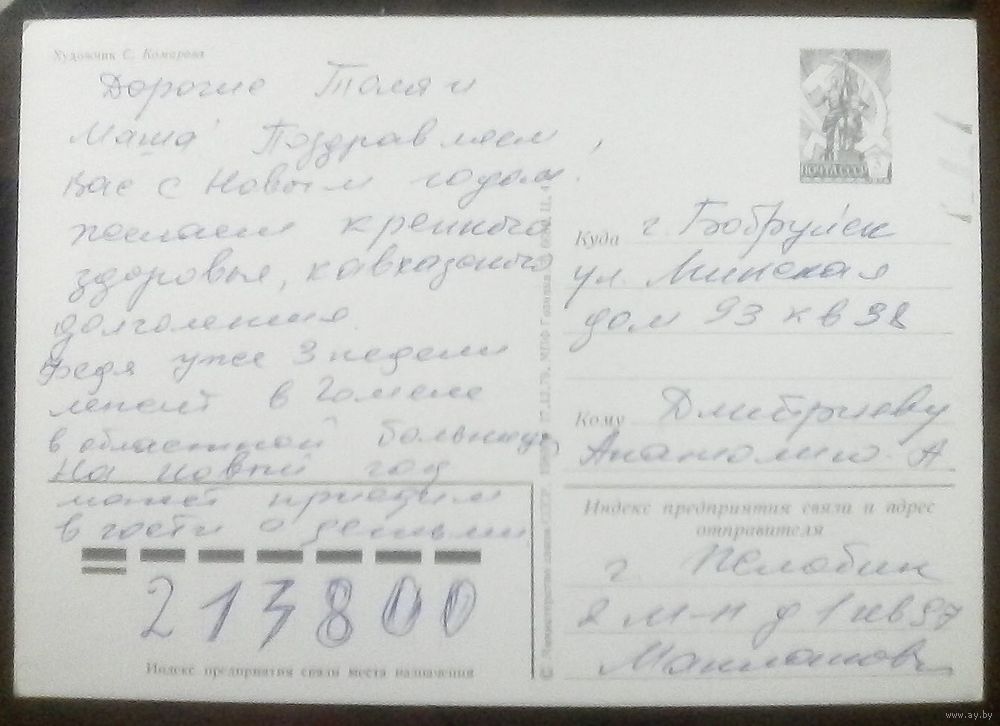 Художник С. Комарова
Дорогие Толя и
Маша! Поздравляем
Вас с Новым годом.
Желаем крепкого
здоровья, кавказского
долголетия.
Федя уже 3 недели
лежит в Гомеле
в областной больнице,
На новый год
может приедем
в гости с детьми
213800
Индекс предприятия связи места назначения
ПОЧТА СССР
Куда г. Бобруйск
ул. Минская
дом 93 кв 38
Кому Дмитриеву
Анатолию А
Индекс предприятия связи и адрес
отправителя
г. Жлобин
2 м-н д 1 кв 97
© Министерство связи СССР
www.ay.by